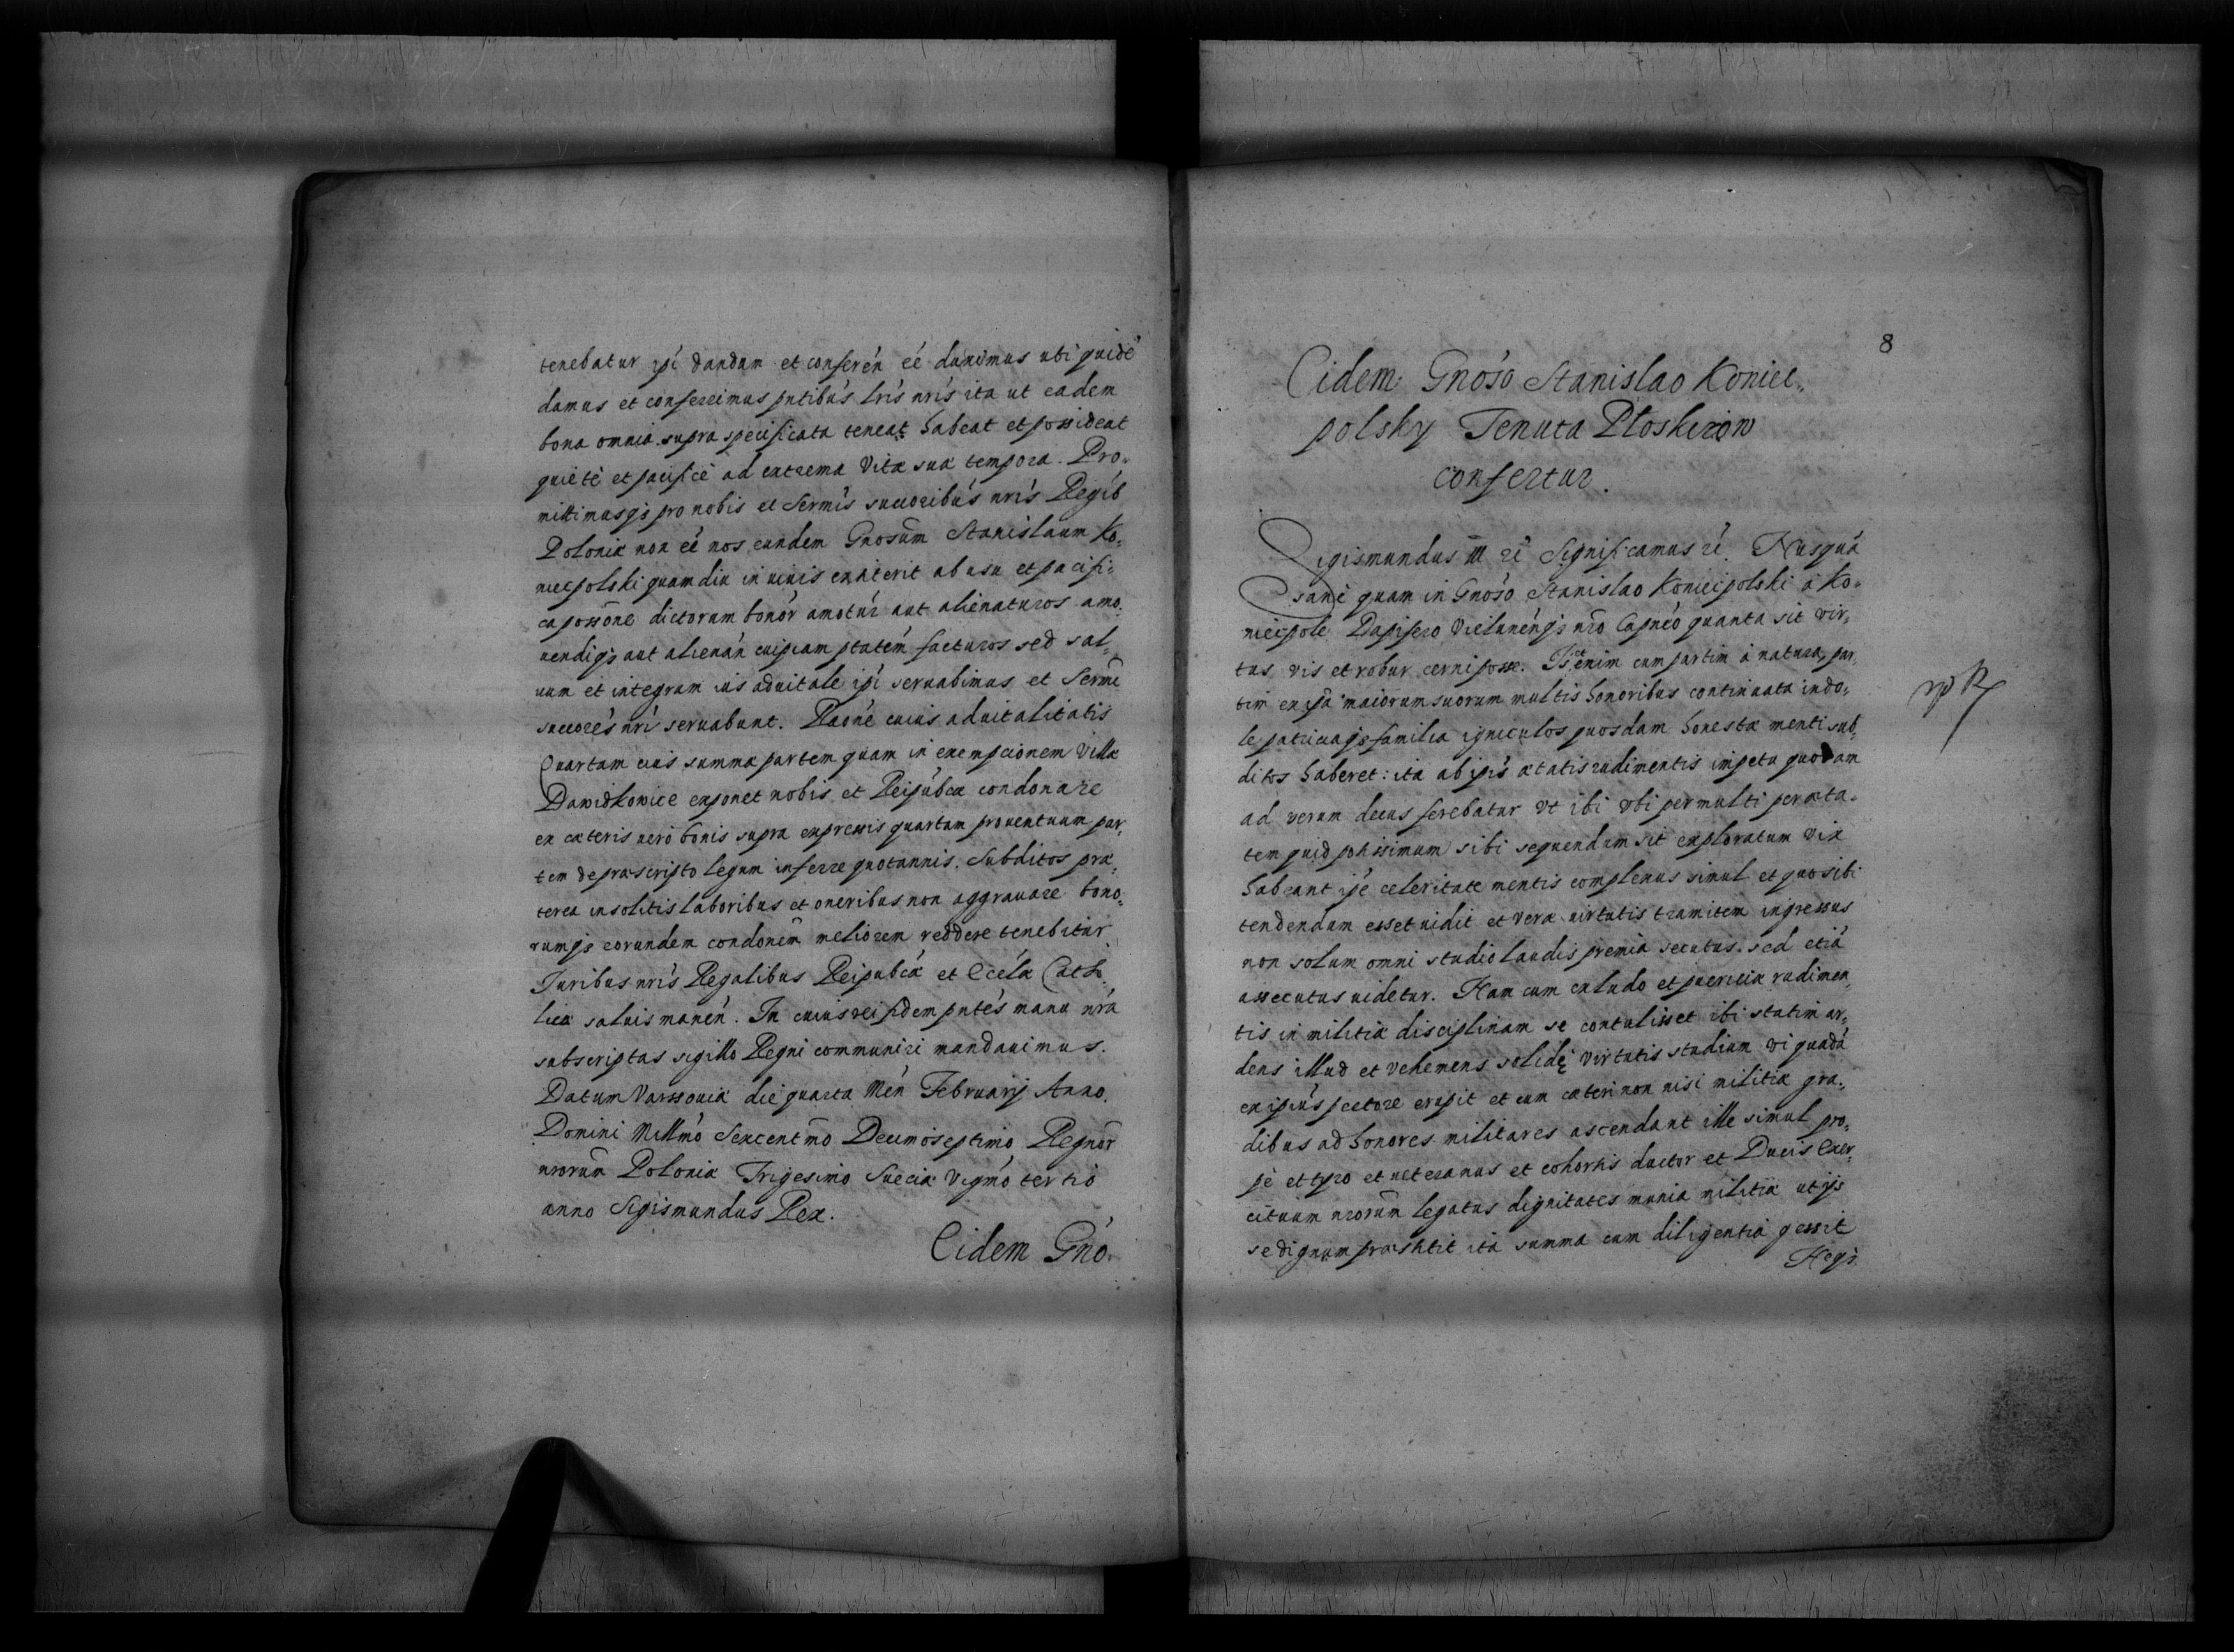 tenebatur ipí dandam et conferén eé duximus uti quidé
damus et conferimus pntibús lrís nrís ita ut eadem
bona omnia supra specificata teneat habeat et possideat
quiete et pacifice ad extrema vitæ suæ tempora. Pro-
mittimusq3 pro nobis et Sermís succoribús nrís Regib
Poloniæ non eé nos eundem Gnosum Stanislaum Ko-
niecpolski quamdiu in uiuis extiterit ab usu et pacifi-
ca possone dictorum bonór amotúr aut alienaturos amo-
uendiq3 aut alienán cuipiam ptatém facturos sed sal-
uum et integrum ius aduitale ipí seruabimus et Sermi
succorés nrí seruabunt. Raone cuius aduitalitatis
Quartam eius summæ partem quam in exempcionem Villæ
Dawidkowice exponet nobis et Reipubcæ condonare
ex cæteris uero bonis supra expressis quartam prouentuum par-
tem de præscripto legum inferre quotannis. Subditos præ-
terea insolitis laboribus et oneribus non aggrauare bono-
rumq3 eorundem condonem meliorem reddere tenebitur.
Juribus nrís Regalibus Reipubcæ et Eccelæ Catho-
licæ saluis manén. In cuius rei fidem pntes manu nra
subscriptas sigillo Regni communiri mandauimus.
Datum Varssouiæ die quarta Men Februarij Anno
Domini Millmo Sexcentmo Decimoseptimo Regnor
nrorum Poloniæ Trigesimo Sueciæ Vigmo tertio
anno Sigismundus Rex.
Eidem Gno.
8
Eidem Gnoso Stanislao Koniec-
polsky Tenuta Ploskirów
confertur.
Sigismundus III rí Significamus rí. Nusquá
sane quam in Gnoso Stanislao Koniecpolski a Ko-
niecpole Dapifero Vielunenq3 nro Capneo quanta sit vir-
tus vis et robur cerni posse. Is et enim cum partim a natura, par-
tim ex ipa maiorum suorum multis honoribus continuata indo-
le patriaq3 familia igniculos quosdam honestæ menti sub-
ditos haberet: ita ab ipis ætatis rudimentis impetu quodam
ad verum decus ferebatur vt ibi vbi permulti per æta-
tem quid potissimum sibi sequendum sit exploratum vix
habeant ipe celeritate mentis complexus simul et quo sibi
tendendum esset uidit et veræ uirtutis tramitem ingressus
non solum omni studio laudis premia secutus. sed etiá
assecutus uidetur. Nam cum ex ludo et pueritiæ rudimen-
tis in militiæ disciplinam se contulisset ibi statim ar-
dens illud et vehemens solidę virtutis studium vi quadá
ex ipius pectore erupit et cum cæteri non nisi militiæ gra-
dibus ad honores militares ascendant ille simul pro-
pe et tyro et ueteranus et cohortis ductor et Ducis Exer-
cituum nrorum legatus dignitates munia militiæ uti ijs
se dignum præstitit ita summa cum diligentia gessit
Neq3